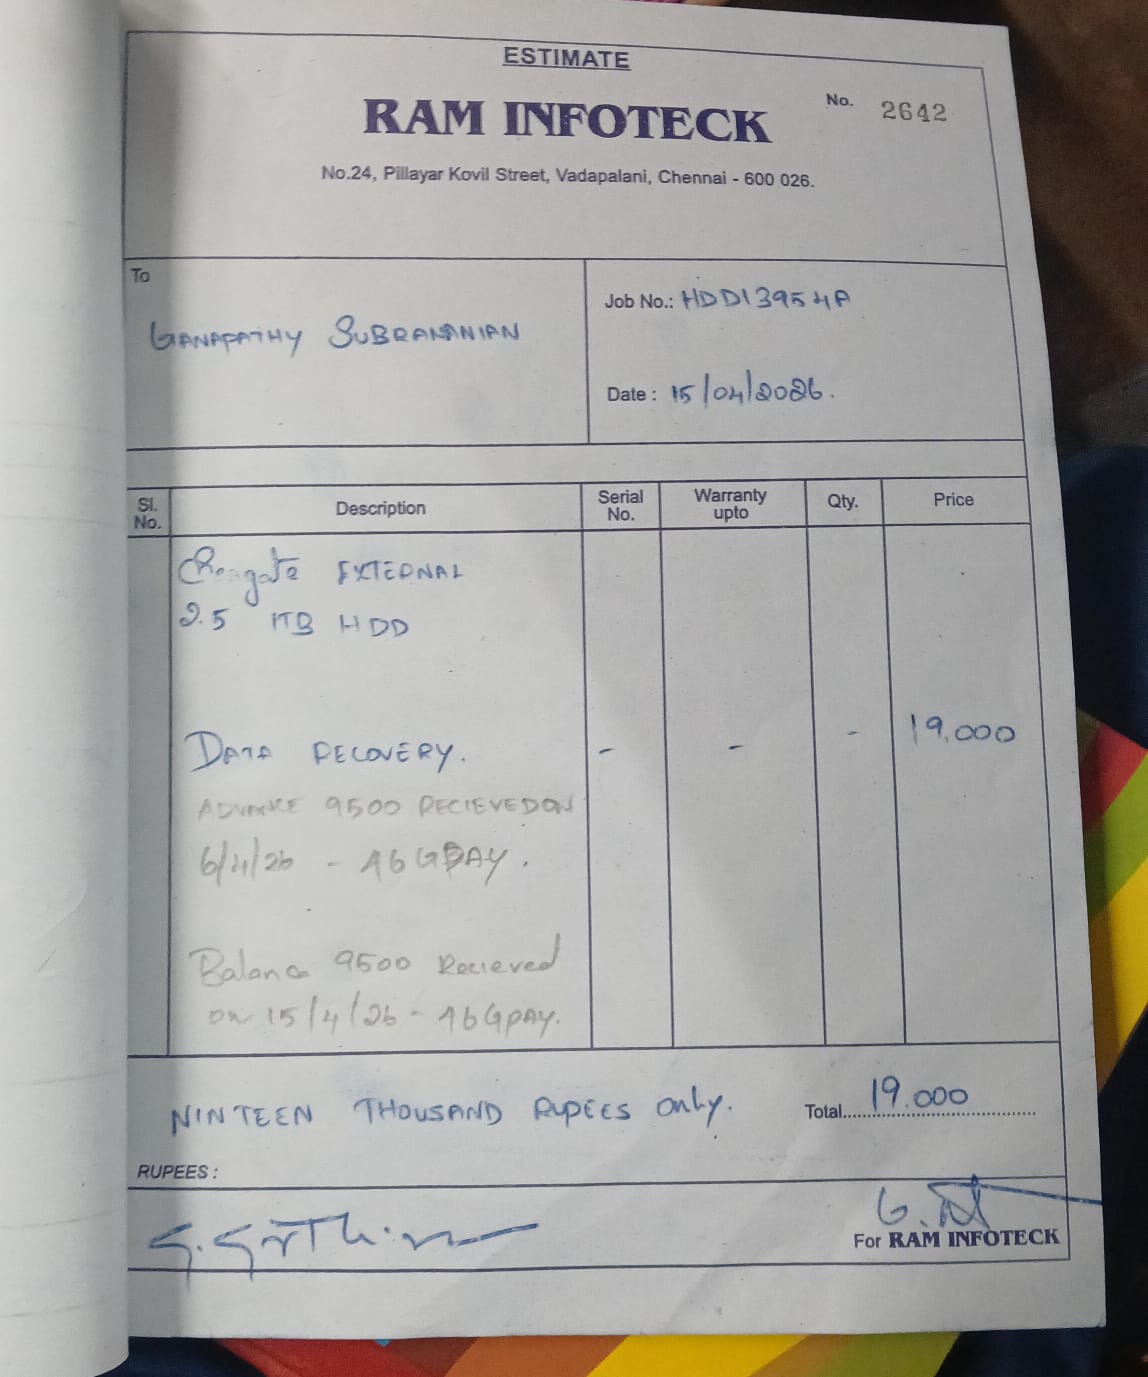 ESTIMATE
RAM INFOTECK
No. 2642
No.24, Pillayar Kovil Street, Vadapalani, Chennai - 600 026.
To
GANAPATHY SUBRAMANIAN
Job No.: HDD13954A
Date : 15/04/2026.
Sl. No. Description Serial No. Warranty upto Qty. Price
EXTERNAL
2.5 1TB HDD
DATA RECOVERY. - - - 19.000
ADVANCE 9500 RECIEVED ON
6/4/26 - GPAY.
Balance 9500 Recieved
on 15/4/26 - GPAY.
NINTEEN THOUSAND RUPEES only.
Total 19.000
RUPEES :
For RAM INFOTECK